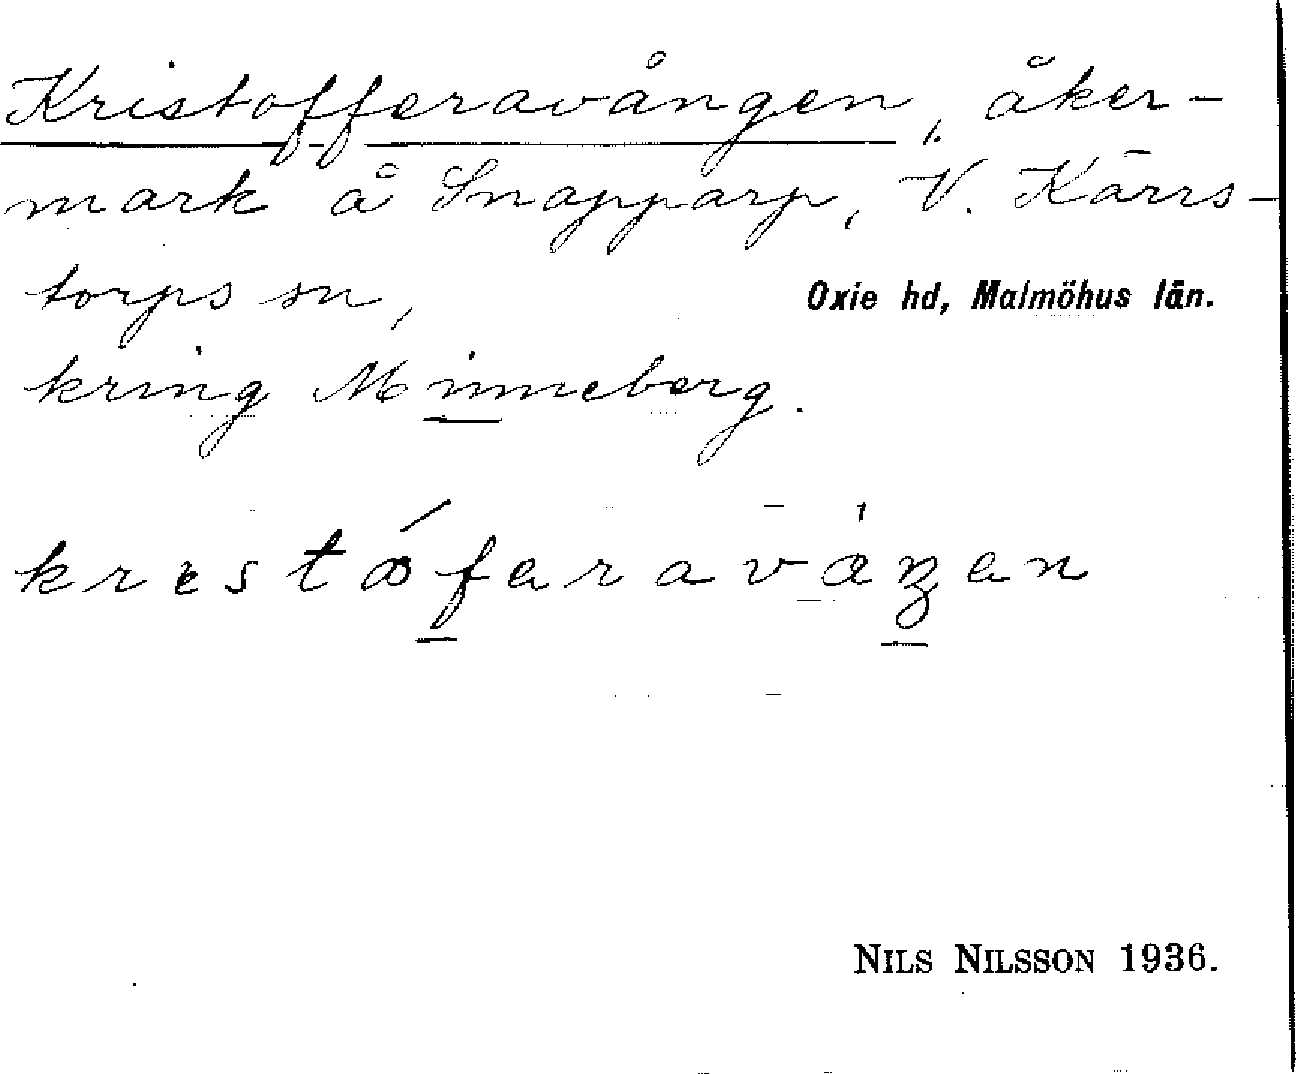 Kristofferavången, åker-
mark å Snapparp, V. Kärrs-
torps sn,
Oxie hd, Malmöhus län.
kring Minneberg.
NILS NILSSON 1936.